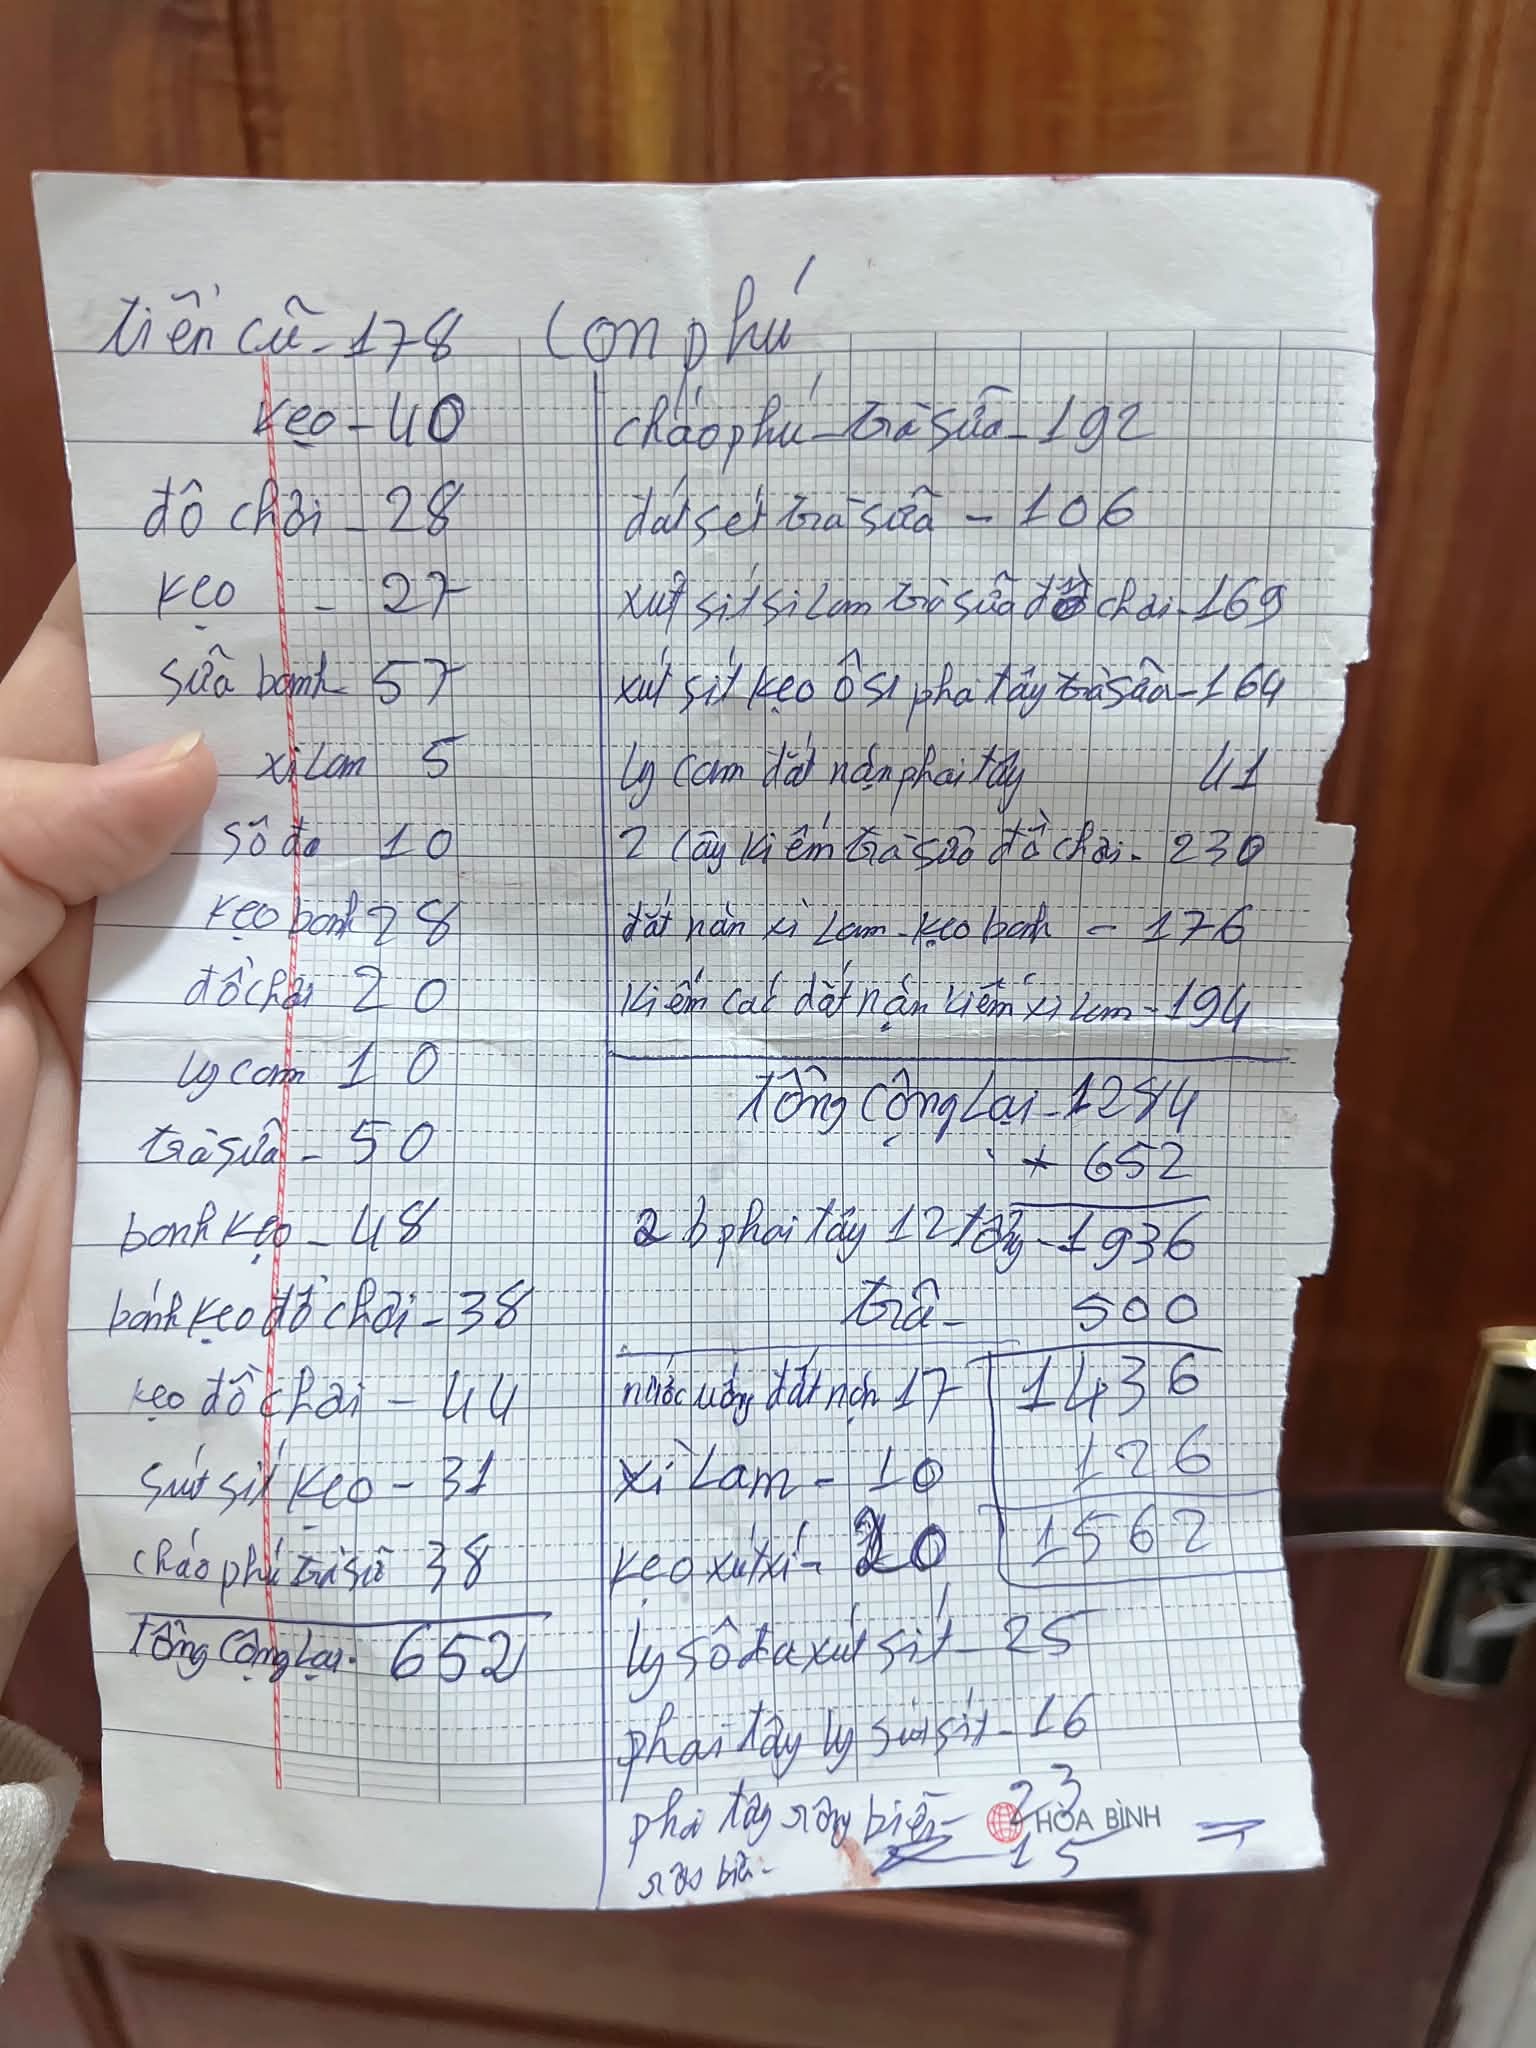 tiền cũ - 178
kẹo - 40
đồ chơi - 28
kẹo - 27
sữa banh - 57
xilam 5
Sô đa 10
kẹo banh 28
đồ chơi 20
ly cam 10
trà sữa - 50
banh kẹo - 48
bánh kẹo đồ chơi - 38
kẹo đồ chơi - 44
sút sít kẹo - 31
cháo phú trà sữ 38
tổng cộng lại - 652
Con phú
cháo phú - trà sữa - 192
đất sét trà sữa - 106
xút sít si lam trà sữa đồ chơi - 169
xút sít kẹo ô si phai tây trà sữa - 164
ly cam đất nặn phai tây 41
2 cây kiếm trà sữa đồ chơi - 230
đất nặn xì lam - kẹo banh - 176
kiếm cac đất nặn kiếm xì lam - 194
tổng cộng lại - 1284
+ 652
2 b phai tây 12 tây - 1936
trả - 500
nước uống đất nặn 17
1436
xì lam - 10
126
kẹo xút xí - 20
1562
ly sô đa xút sít - 25
phai tây ly sút sít - 16
phai tây rông biển - 23
HÒA BÌNH
15